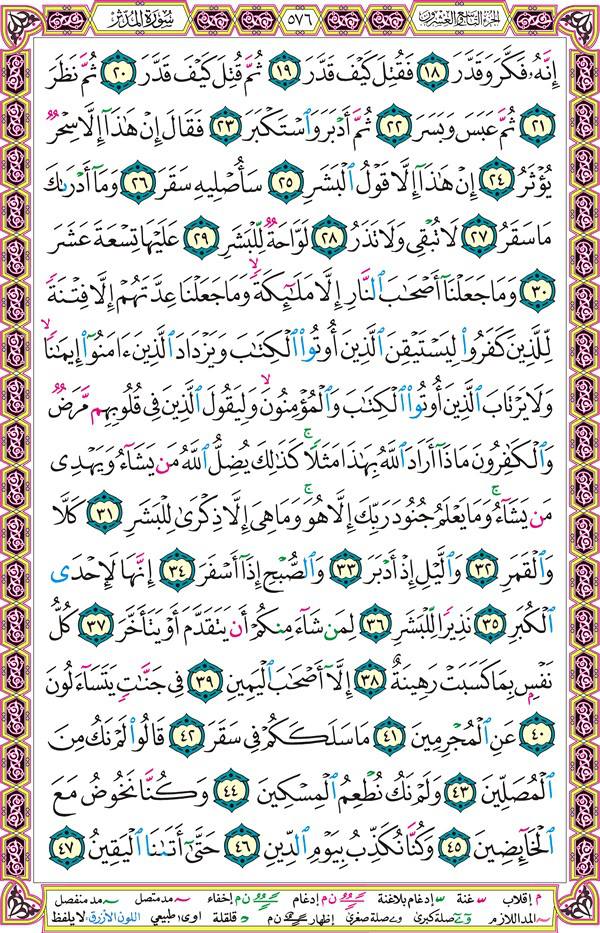 سُورَةُ المُدَّثِّر ٥٧٦ الجُزءُ التَّاسِعُ وَالعِشرُونَ
إِنَّهُۥ فَكَّرَ وَقَدَّرَ ١٨ فَقُتِلَ كَيْفَ قَدَّرَ ١٩ ثُمَّ قُتِلَ كَيْفَ قَدَّرَ ٢٠ ثُمَّ نَظَرَ
٢١ ثُمَّ عَبَسَ وَبَسَرَ ٢٢ ثُمَّ أَدْبَرَ وَٱسْتَكْبَرَ ٢٣ فَقَالَ إِنْ هَٰذَآ إِلَّا سِحْرٌ
يُؤْثَرُ ٢٤ إِنْ هَٰذَآ إِلَّا قَوْلُ ٱلْبَشَرِ ٢٥ سَأُصْلِيهِ سَقَرَ ٢٦ وَمَآ أَدْرَىٰكَ
مَا سَقَرُ ٢٧ لَا تُبْقِى وَلَا تَذَرُ ٢٨ لَوَّاحَةٌ لِّلْبَشَرِ ٢٩ عَلَيْهَا تِسْعَةَ عَشَرَ
٣٠ وَمَا جَعَلْنَآ أَصْحَٰبَ ٱلنَّارِ إِلَّا مَلَٰٓئِكَةً ۙ وَمَا جَعَلْنَا عِدَّتَهُمْ إِلَّا فِتْنَةً
لِّلَّذِينَ كَفَرُوا۟ لِيَسْتَيْقِنَ ٱلَّذِينَ أُوتُوا۟ ٱلْكِتَٰبَ وَيَزْدَادَ ٱلَّذِينَ ءَامَنُوٓا۟ إِيمَٰنًا ۙ
وَلَا يَرْتَابَ ٱلَّذِينَ أُوتُوا۟ ٱلْكِتَٰبَ وَٱلْمُؤْمِنُونَ ۙ وَلِيَقُولَ ٱلَّذِينَ فِى قُلُوبِهِم مَّرَضٌ
وَٱلْكَٰفِرُونَ مَاذَآ أَرَادَ ٱللَّهُ بِهَٰذَا مَثَلًا ۚ كَذَٰلِكَ يُضِلُّ ٱللَّهُ مَن يَشَآءُ وَيَهْدِى
مَن يَشَآءُ ۚ وَمَا يَعْلَمُ جُنُودَ رَبِّكَ إِلَّا هُوَ ۚ وَمَا هِىَ إِلَّا ذِكْرَىٰ لِلْبَشَرِ ٣١ كَلَّا
وَٱلْقَمَرِ ٣٢ وَٱلَّيْلِ إِذْ أَدْبَرَ ٣٣ وَٱلصُّبْحِ إِذَآ أَسْفَرَ ٣٤ إِنَّهَا لَإِحْدَى
ٱلْكُبَرِ ٣٥ نَذِيرًا لِّلْبَشَرِ ٣٦ لِمَن شَآءَ مِنكُمْ أَن يَتَقَدَّمَ أَوْ يَتَأَخَّرَ ٣٧ كُلُّ
نَفْسٍۭ بِمَا كَسَبَتْ رَهِينَةٌ ٣٨ إِلَّآ أَصْحَٰبَ ٱلْيَمِينِ ٣٩ فِى جَنَّٰتٍ يَتَسَآءَلُونَ
٤٠ عَنِ ٱلْمُجْرِمِينَ ٤١ مَا سَلَكَكُمْ فِى سَقَرَ ٤٢ قَالُوا۟ لَمْ نَكُ مِنَ
ٱلْمُصَلِّينَ ٤٣ وَلَمْ نَكُ نُطْعِمُ ٱلْمِسْكِينَ ٤٤ وَكُنَّا نَخُوضُ مَعَ
ٱلْخَآئِضِينَ ٤٥ وَكُنَّا نُكَذِّبُ بِيَوْمِ ٱلدِّينِ ٤٦ حَتَّىٰٓ أَتَىٰنَا ٱلْيَقِينُ ٤٧
م إقلاب غنة إدغام بلاغنة ن م إدغام ن م إخفاء مد متصل مد منفصل
المد اللازم صلة كبرى صلة صغرى إظهار ن م قلقلة اوى طبيعي اللون الأزرق: لا يلفظ